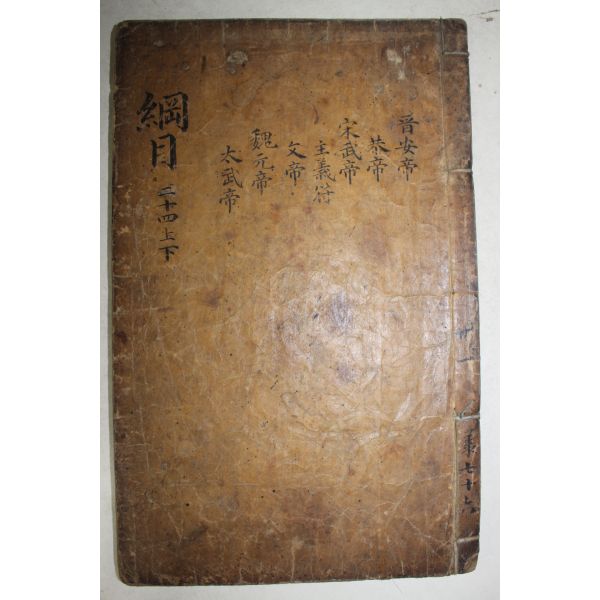 綱目
二十四上下
晋安帝
恭帝
宋武帝
主義符
文帝
魏元帝
太武帝
卄一
共七十六